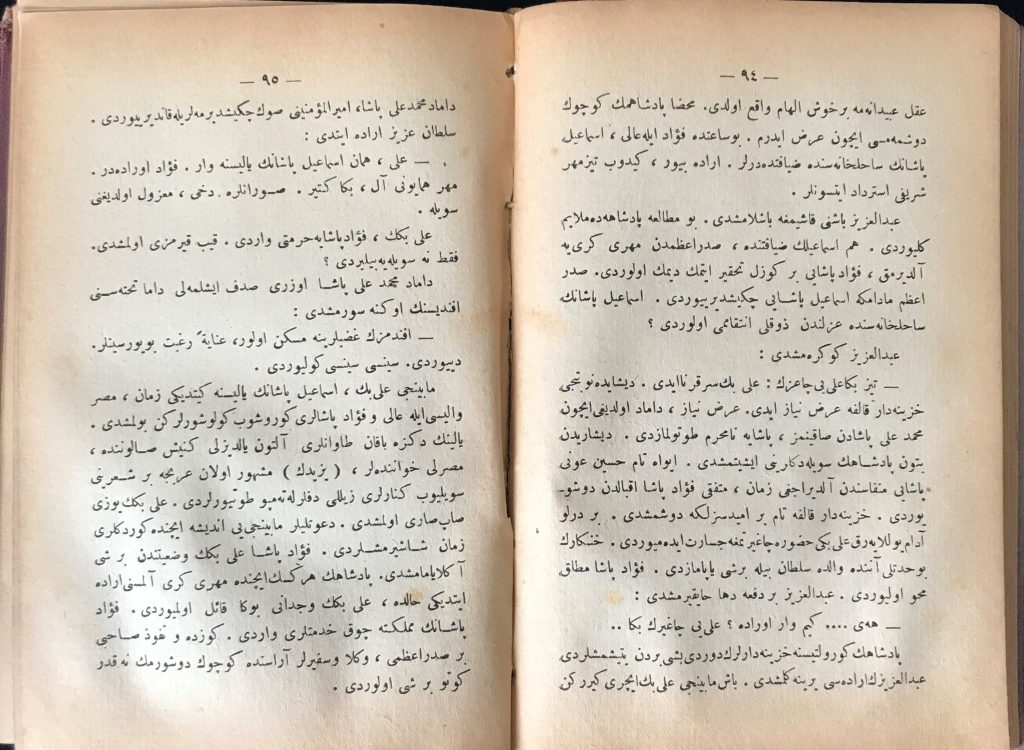 — ٩٤ —
عقل عبیدانه‌مه بر خوش الهام واقع اولدی. محضا پادشاهمك كوچوك
دوشمه‌مسی ایچون عرض ایدرم . بوساعتده فؤاد ایله عالی ، اسماعیل
پاشانك ساحلخانه‌سنده ضیافتده‌درلر . اراده بیور ، كیدوب تیز مهر
شریفی استرداد ایتسونلر .
عبدالعزیز باشنی قاشیمغه باشلامشدی . بو مطالعه پادشاهه‌ده ملایم
كلیوردی . هم اسماعیلك ضیافتنده ، صدراعظمدن مهری كری‌یه
آلدیرمق ، فؤاد پاشایی بر كوزل تحقیر ایتمك دیمك اولوردی. صدر
اعظم مادامكه اسماعیل پاشایی چكیشدیرییوردی . اسماعیل پاشانك
ساحلخانه‌سنده عزلندن ذوقلی انتقاممی اولوردی ؟
عبدالعزیز كوكره‌مشدی :
— تیز بكا علی‌بی چاغرك : علی بك سرقرنا ایدی . دیشاریده نوبتجی
خزینه‌دار قالفه عرض نیاز ایدی. عرض نیاز ، داماد اولدیغی ایچون
محمد علی پاشادن صاقینمز ، پاشایه نامحرم طوتولمازدی . دیشاریدن
بتون پادشاهك سویله‌دكلرینی ایشیتمشدی . ایواه تام حسین عونی
پاشایی منفاسندن آلدیراجغی زمان ، متفقی فؤاد پاشا اقبالدن دوشو-
یوردی . خزینه‌دار قالفه تام بر امیدسزلكه دوشمشدی . بر درلو
آدام یوللایه‌رق علی بكی حضوره چاغیرتمغه جسارت ایده‌میوردی . خنكارك
بوحدتلی آننده والده سلطان بیله برشی یاپامازدی . فؤاد پاشا مطلق
محو اولیوردی . عبدالعزیز بر دفعه دها حایقیرمشدی :
— هه‌ی .... كیم وار اوراده ؟ علی‌بی چاغیرك بكا ..
پادشاهك كورولتیسنه خزینه‌دارلرك دوردی بشی بردن یتیشمشلردی
عبدالعزیزك اراده‌سی یرینه كلمشدی . باش مابینجی علی بك ایچری كیرركن
— ٩٥ —
داماد محمد علی پاشا، امیرالمؤمنینی صوك چكیشدیرمه‌لریله قاندیرییوردی .
سلطان عزیز اراده ایتدی :
— علی ، همان اسماعیل پاشانك یالیسنه وار . فؤاد اوراده‌در .
مهر همایونی آل ، بكا كتیر . صورانلره دخی ، معزول اولدیغنی
سویله .
علی بكك ، فؤاد پاشایه حرمتی واردی . قیب قیرمزی اولمشدی.
فقط نه سویله‌یه‌بیلیردی ؟
داماد محمد علی پاشا اوزری صدف ایشلمه‌لی داما تخته‌سنی
افندیسنك اوكنه سورمشدی :
— افندمزك غضبلرینه مسكن اولور، عنایةً رغبت بویورسینلر.
دییوردی . سینسی سینسی كولیوردی .
مابینجی علی بك ، اسماعیل پاشانك یالیسنه كیتدیكی زمان ، مصر
والیسی ایله عالی و فؤاد پاشالری كوروشوب كولوشورلركن بولمشدی .
یالینك دكزه باقان طاوانلری آلتون یالدیزلی كنیش صالوننده ،
مصرلی خواننده‌لر ، ( یزیدك ) مشهور اولان عربجه بر شعرینی
سویلیوب كنارلری زیللی دفلرله تمپو طوتیورلردی . علی بكك یوزی
صاپ صاری اولمشدی . دعوتلیلر مابینجی‌یی اندیشه ایچنده كوردكلری
زمان شاشیرمشلردی . فؤاد پاشا علی بكك وضعیتندن بر شی
آكلایامامشدی. پادشاهك هركسك ایچنده مهری كری آلمسنی اراده
ایتدیكی حالده ، علی بكك وجدانی بوكا قائل اولمیوردی . فؤاد
پاشانك مملكته چوق خدمتلری واردی . كوزده و نفوذ صاحبی
بر صدراعظمی ، وكلا وسفیرلر آراسنده كوچوك دوشورمك نه قدر
كوتو بر شی اولوردی .